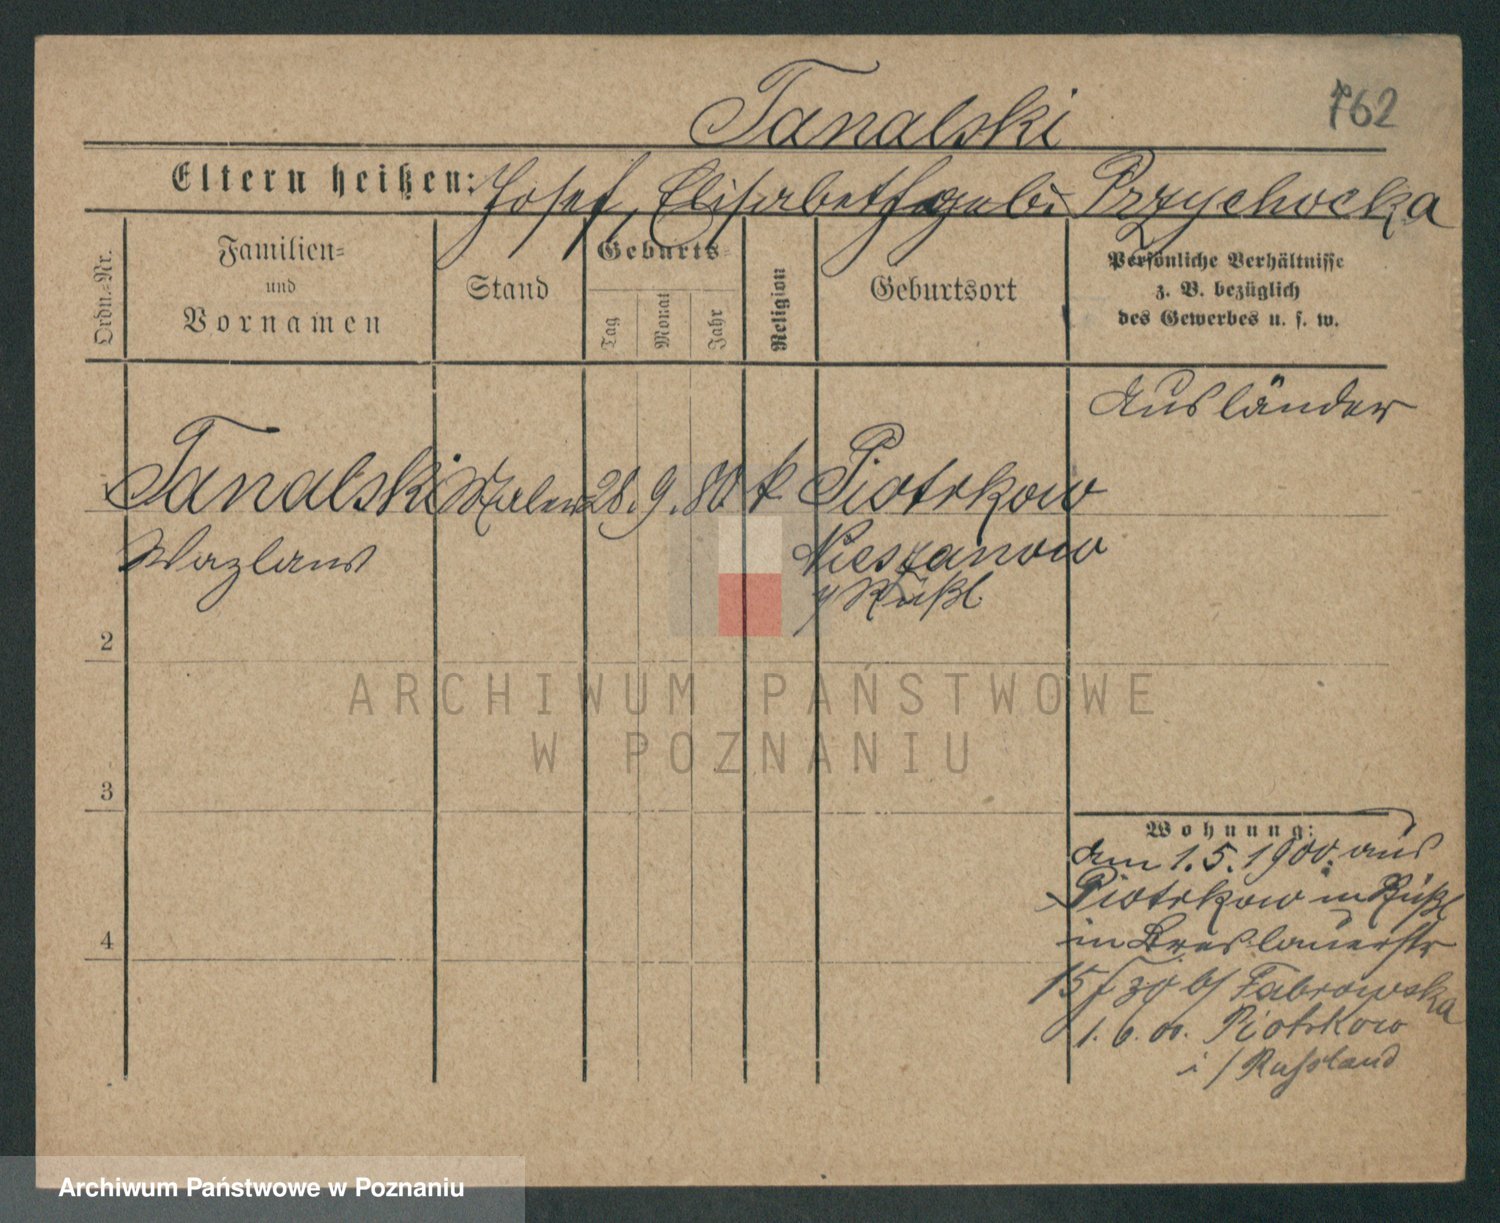 Tanalski
762
Eltern heißen: Josef, Elisabeth geb. Przychocka
Ordn.-Nr.
Familien-
und
Vornamen
Stand
Geburts-
Tag
Monat
Jahr
Religion
Geburtsort
Persönliche Verhältnisse
z. B. bezüglich
des Gewerbes u. s. w.
Ausländer
Tanalski Maler 28. 9. 80 k Piotrkow
Wazlaus
Nieszanowo
Rußl.
2
ARCHIWUM PAŃSTWOWE
W POZNANIU
3
Wohnung:
am 1.5.1900. aus
Piotrkow in Rußl
in Breslauerstr
15 bei Fabrowska
1. 6. 00. Piotrkow
i/Russland
4
Archiwum Państwowe w Poznaniu